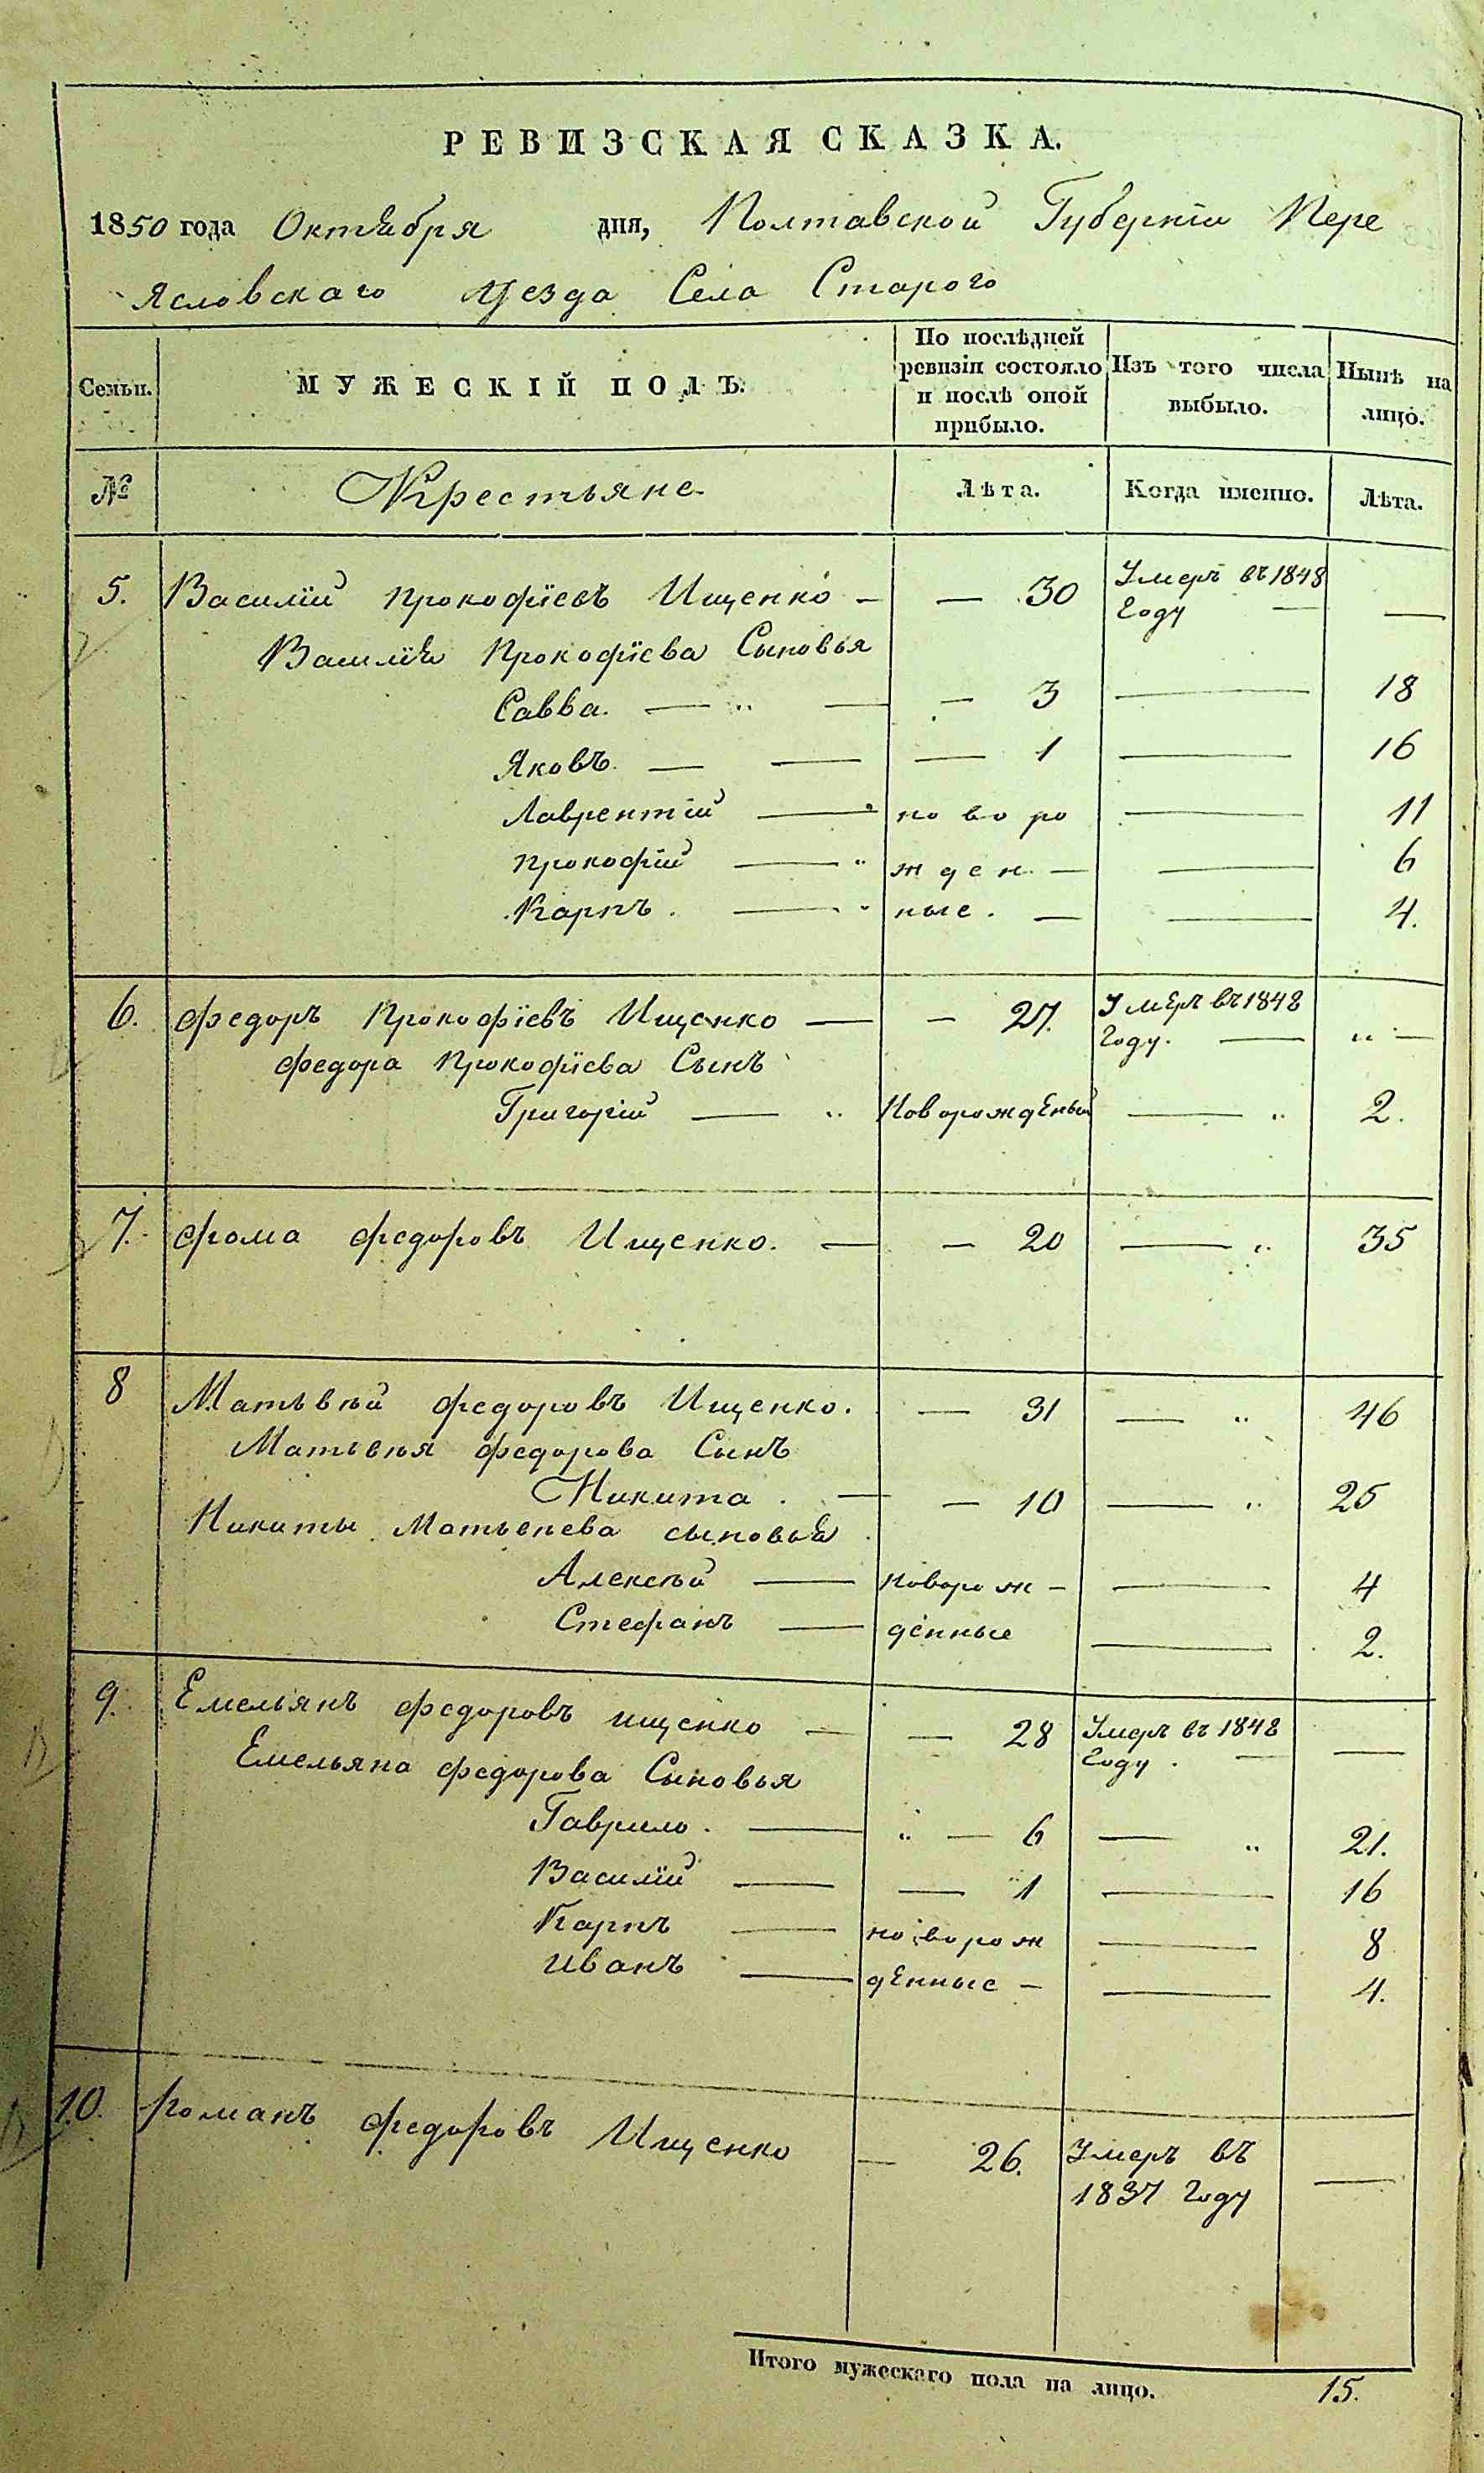 РЕВИЗСКАЯ СКАЗКА.
1850 года Октября дня, Полтавской Губерніи Пере
Ясловскаго уезда Села Старого
Семьи.
МУЖЕСКІЙ ПОЛЪ.
По послѣдней ревизіи состояло и послѣ оной прибыло.
Изъ того числа выбыло.
Нынѣ на лицо.
№ Крестьяне. Лѣта. Когда именно. Лѣта.
5. Василій Прокофіевъ Ищенко — — 30 Умеръ въ 1848 Году — —
Василія Прокофіева Сыновья
Савва. — „ — — 3 — 18
Яковъ. — — — 1 — 16
Лаврентій — ново ро — 11
Прокофій — „ жден. — — 6
Карпъ. — „ ные. — — 4.
6. Федоръ Прокофіевъ Ищенко — — 27. Умеръ въ 1848 Году. — „ —
Федора Прокофіева Сынъ
Григорій — „ Новорожденый — „ 2.
7. Фома Федоровъ Ищенко. — — 20 — „ 35
8 Матьвѣй Федоровъ Ищенко. — 31 — „ 46
Матьвѣя Федорова Сынъ
Никита. — — 10 — „ 25
Никиты Матьвѣева сыновья
Алексѣй — Новорож — — 4
Стефанъ — денные — 2.
9. Емельянъ Федоровъ ищенко — — 28 Умеръ въ 1848 Году. — —
Емельяна Федорова Сыновья
Гаврило. — „ — 6 — „ 21.
Василій — — 1 — 16
Карпъ — новорож — 8
Иванъ — денные — — 4.
10. Романъ Федоровъ Ищенко — 26. Умеръ въ 1837 Году —
Итого мужескаго пола на лицо. 15.